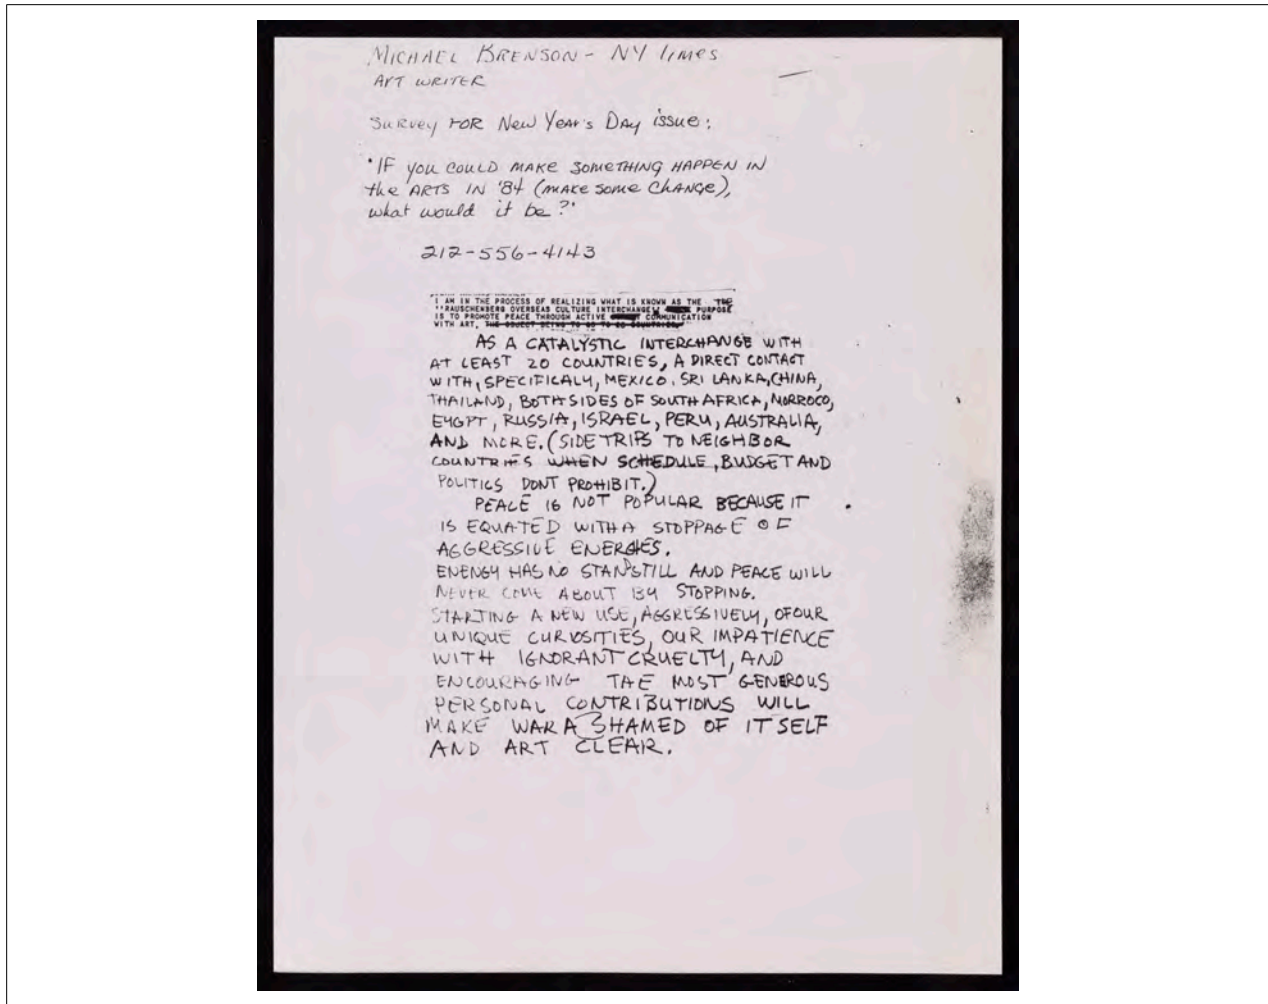 MICHAEL BRENSON - NY Times
ART WRITER
Survey FOR New Year's Day issue:
"IF you COULD MAKE SOMETHING HAPPEN IN
the ARTS IN '84 (MAKE some CHANGE),
what would it be?"
212-556-4143
I AM IN THE PROCESS OF REALIZING WHAT IS KNOWN AS THE THE
"RAUSCHENBERG OVERSEAS CULTURE INTERCHANGE" PURPOSE
IS TO PROMOTE PEACE THROUGH ACTIVE COMMUNICATION
WITH ART,
AS A CATALYSTIC INTERCHANGE WITH
AT LEAST 20 COUNTRIES, A DIRECT CONTACT
WITH, SPECIFICALY, MEXICO, SRI LANKA, CHINA,
THAILAND, BOTH SIDES OF SOUTH AFRICA, MORROCO,
EYGPT, RUSSIA, ISRAEL, PERU, AUSTRALIA,
AND MORE. (SIDE TRIPS TO NEIGHBOR
COUNTRIES WHEN SCHEDULE, BUDGET AND
POLITICS DONT PROHIBIT.)
PEACE IS NOT POPULAR BECAUSE IT
IS EQUATED WITH A STOPPAGE OF
AGGRESSIVE ENERGIES.
ENENGY HAS NO STANDSTILL AND PEACE WILL
NEVER COME ABOUT BY STOPPING.
STARTING A NEW USE, AGGRESSIVELY, OF OUR
UNIQUE CURIOSITIES, OUR IMPATIENCE
WITH IGNORANT CRUELTY, AND
ENCOURAGING THE MOST GENEROUS
PERSONAL CONTRIBUTIONS WILL
MAKE WAR ASHAMED OF ITSELF
AND ART CLEAR.